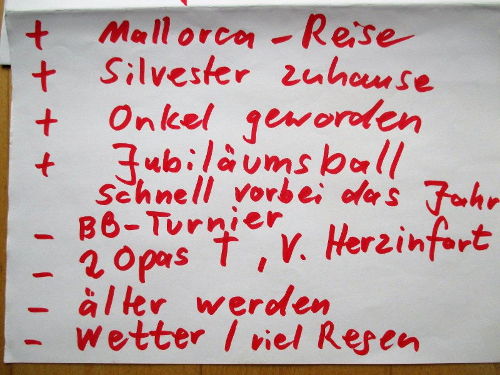 + Mallorca-Reise
+ Silvester zuhause
+ Onkel geworden
+ Jubiläumsball
schnell vorbei das Jahr
- BB-Turnier
- 2 Opas †, V. Herzinfart
- älter werden
- Wetter / viel Regen